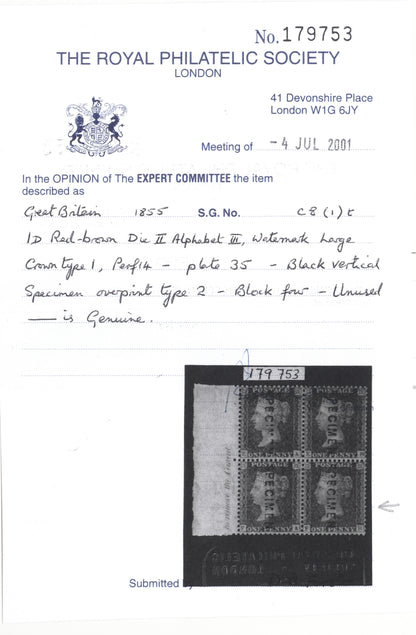 No. 179753
THE ROYAL PHILATELIC SOCIETY
LONDON
41 Devonshire Place
London W1G 6JY
Meeting of - 4 JUL 2001
In the OPINION of The EXPERT COMMITTEE the item
described as
Great Britain 1855 S.G. No. C8 (1) t
1D Red-brown Die II Alphabet III, Watermark Large
Crown type 1, Perf 14 - plate 35 - Black vertical
Specimen overprint type 2 - Block four - Unused
— is Genuine.
179 753
POSTAGE POSTAGE
SPECIMEN SPECIMEN
ONE PENNY ONE PENNY
POSTAGE POSTAGE
SPECIMEN SPECIMEN
ONE PENNY ONE PENNY
Submitted by